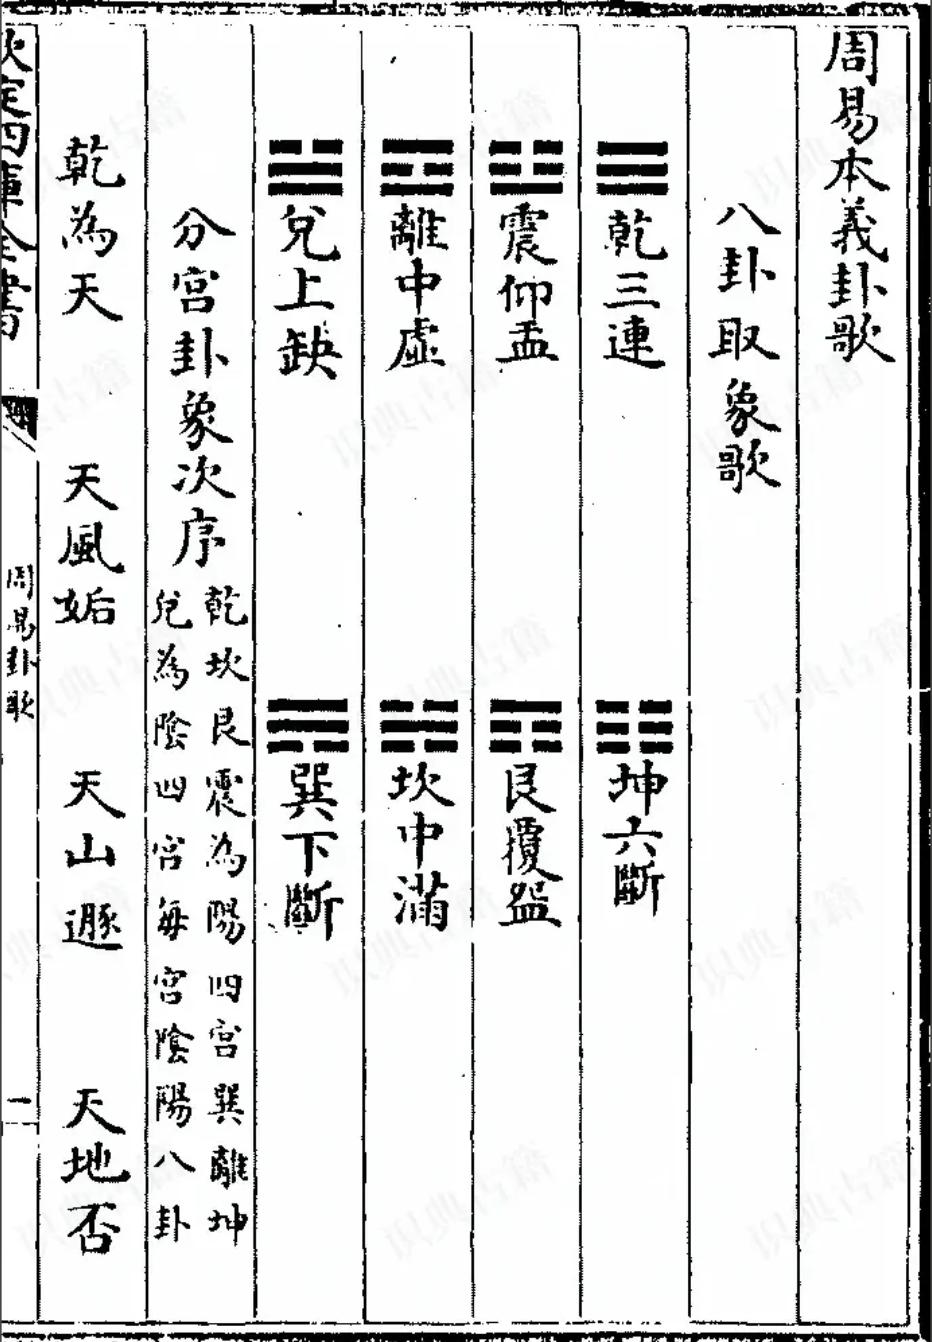 周易本義卦歌
八卦取象歌
☰乾三連 ☷坤六斷
☳震仰盂 ☶艮覆盌
☲離中虛 ☵坎中滿
☱兌上缺 ☴巽下斷
分宮卦象次序
乾坎艮震為陽四宮巽離坤
兌為陰四宮每宮陰陽八卦
乾為天 天風姤 天山遯 天地否
欽定四庫全書
周易卦歌
一
識典古籍